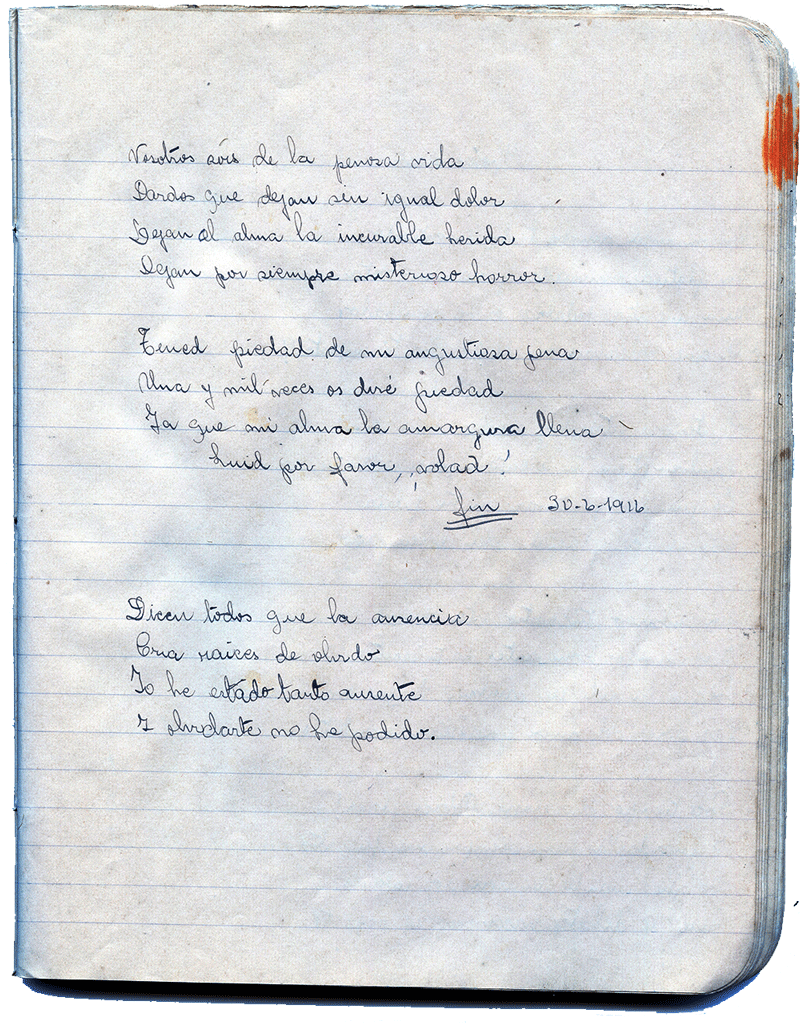 Vosotros sóis de la penosa vida
Dardos que dejan sin igual dolor
Dejan al alma la incurable herida
Dejan por siempre misterioso horror.
Tened piedad de mi angustiosa pena
Una y mil veces os diré piedad
Ya que mi alma la amargura llena
huid por favor, ¡volad!
fin 30-6-1916
Dicen todos que la ausencia
Cria raices de olvido
Yo he estado tanto ausente
Y olvidarte no he podido.